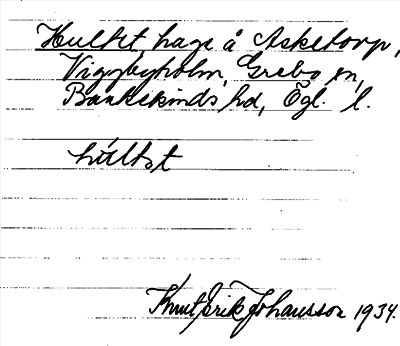 Hultet, hage å Asketorp,
Viggbyholm, Grebo sn,
Bankekinds hd, Ögl. l.
húlt,t
Knut Erik Johansson 1934.